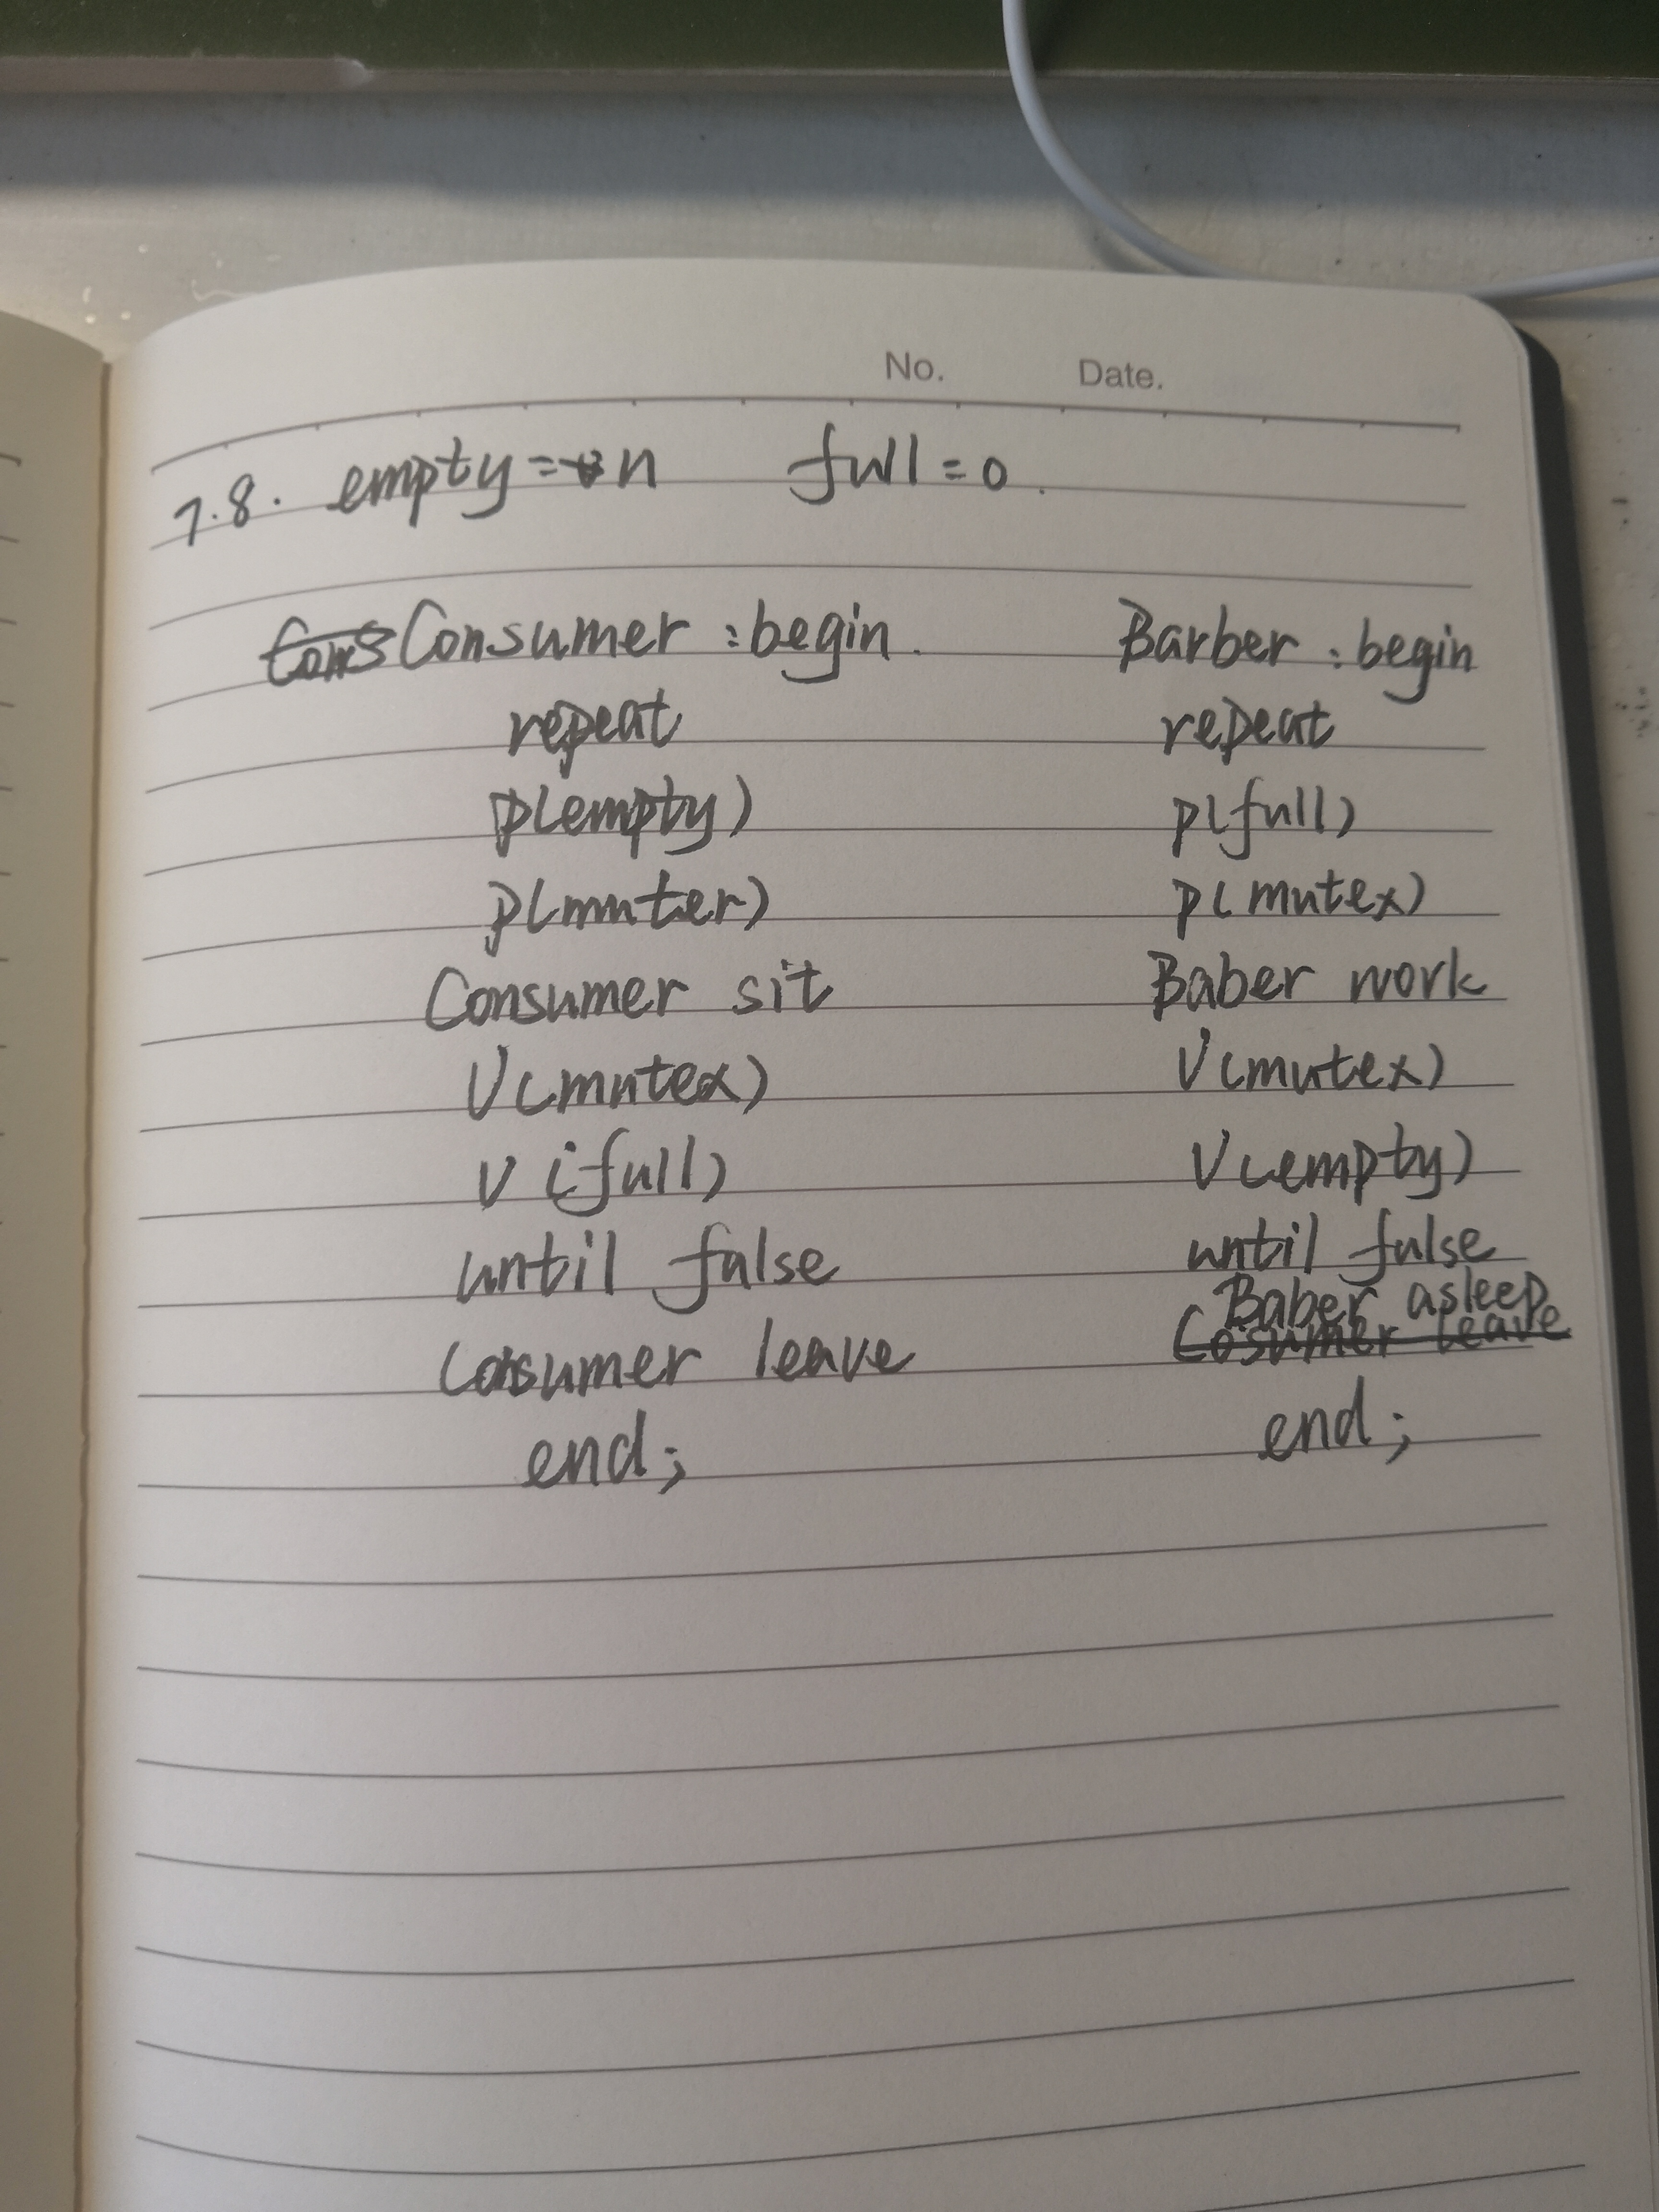 No. Date.
7.8. empty = n full = 0.
Consumer : begin.
repeat
p(empty)
p(muter)
Consumer sit
V(mutex)
V(full)
until false
Consumer leave
end;
Barber : begin
repeat
p(full)
p(mutex)
Baber work
V(mutex)
V(empty)
until false
Baber asleep
Cosumer leave
end;